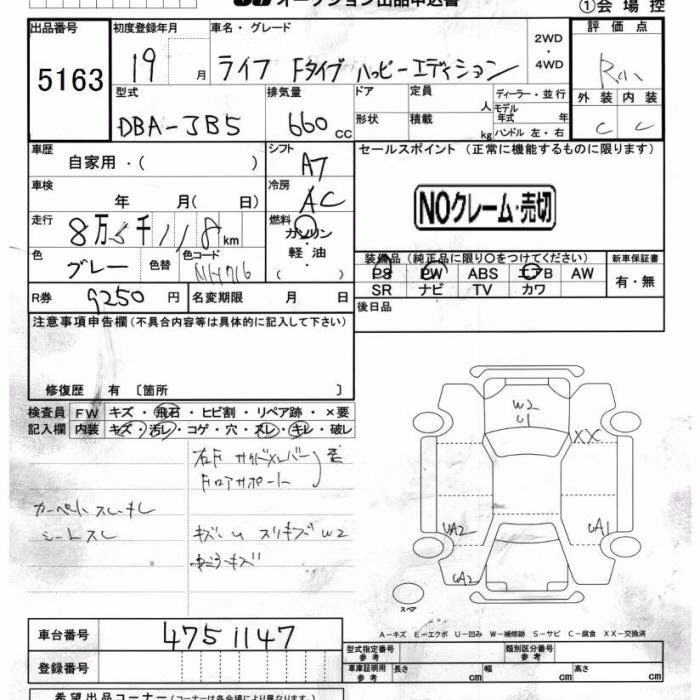 オークション出品申込書
①会場控
出品番号 初度登録年月 車名・グレード 2WD・4WD 評価点
5163 19 月 ライフ Fタイプ ハッピーエディション
型式 排気量 ドア 定員 人 ディーラー・並行 外装 内装
DBA-JB5 660 cc 形状 積載 kg モデル年式 年 ハンドル 左・右 C C
車歴 自家用・( ) シフト A7 セールスポイント (正常に機能するものに限ります)
車検 年 月( 日) 冷房 AC
NOクレーム・売切
走行 8万5千118km 燃料 ガソリン 軽油 ( )
色 グレー 色替 色コード NH716
装備品 (純正品に限り○をつけてください) 新車保証書
PS PW ABS エアB AW 有・無
SR ナビ TV カワ
R券 9250円 名変期限 月 日 後日品
注意事項申告欄 (不具合内容等は具体的に記入して下さい)
修復歴 有 〔箇所 〕
検査員記入欄 FW キズ・飛石・ヒビ割・リペア跡・×要
内装 キズ・汚レ・コゲ・穴・スレ・キレ・破レ
右F サイドメンバー
Fロアサポート
カーペット スレ・キレ
シートスレ
キズ・U スリキズ W2
W2
U1
XX
UA2
UA1
UA2
スペア
A-キズ E-エクボ U-凹み W-補修跡 S-サビ C-腐食 XX-交換済
車台番号 4751147
登録番号
型式指定番号 参考 類別区分番号 参考
車庫証明用 参考 長さ cm 幅 cm 高さ cm
希望出品コーナー (コーナーは各会場により異なります)